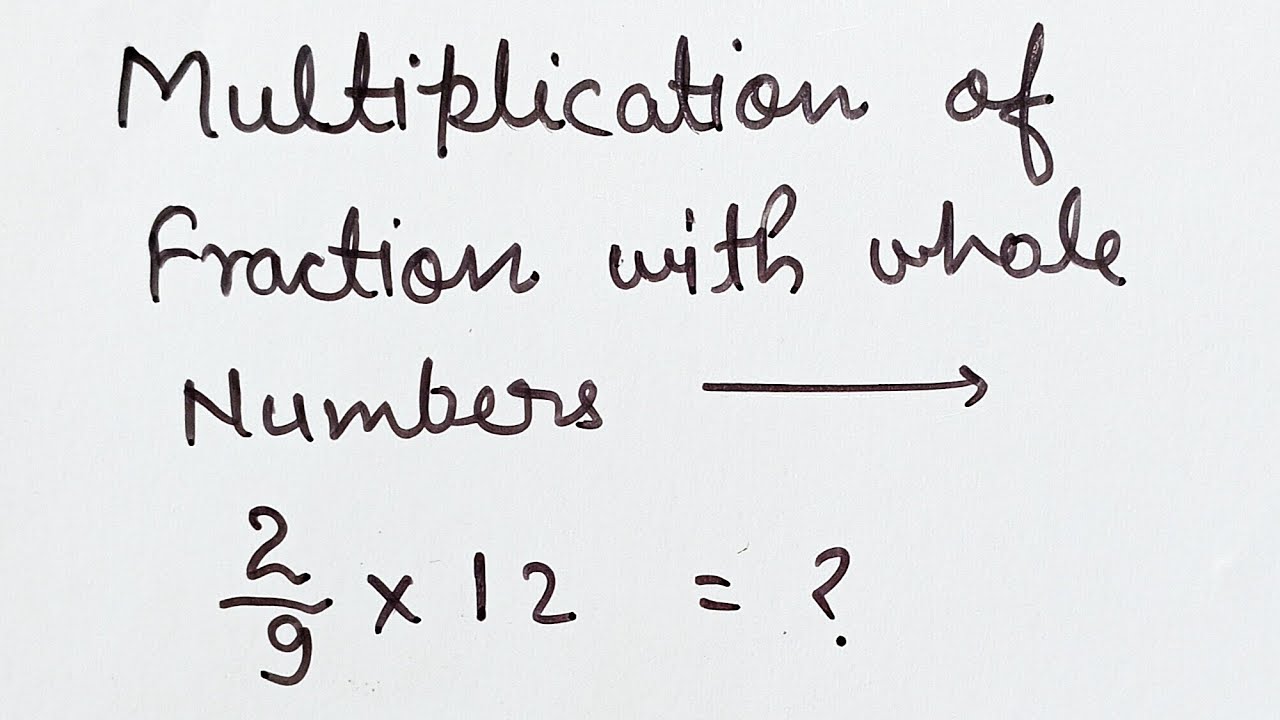 Multiplication of
Fraction with whole
Numbers →
2/9 × 12 = ?